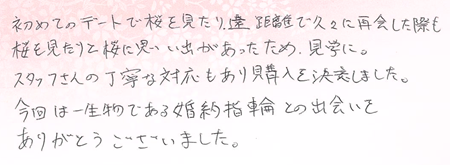 初めてのデートで桜を見たり、遠距離で久々に再会した際も
桜を見たりと桜に思い出があったため、見学に。
スタッフさんの丁寧な対応もあり購入を決意しました。
今回は一生物である婚約指輪との出会いを
ありがとうございました。